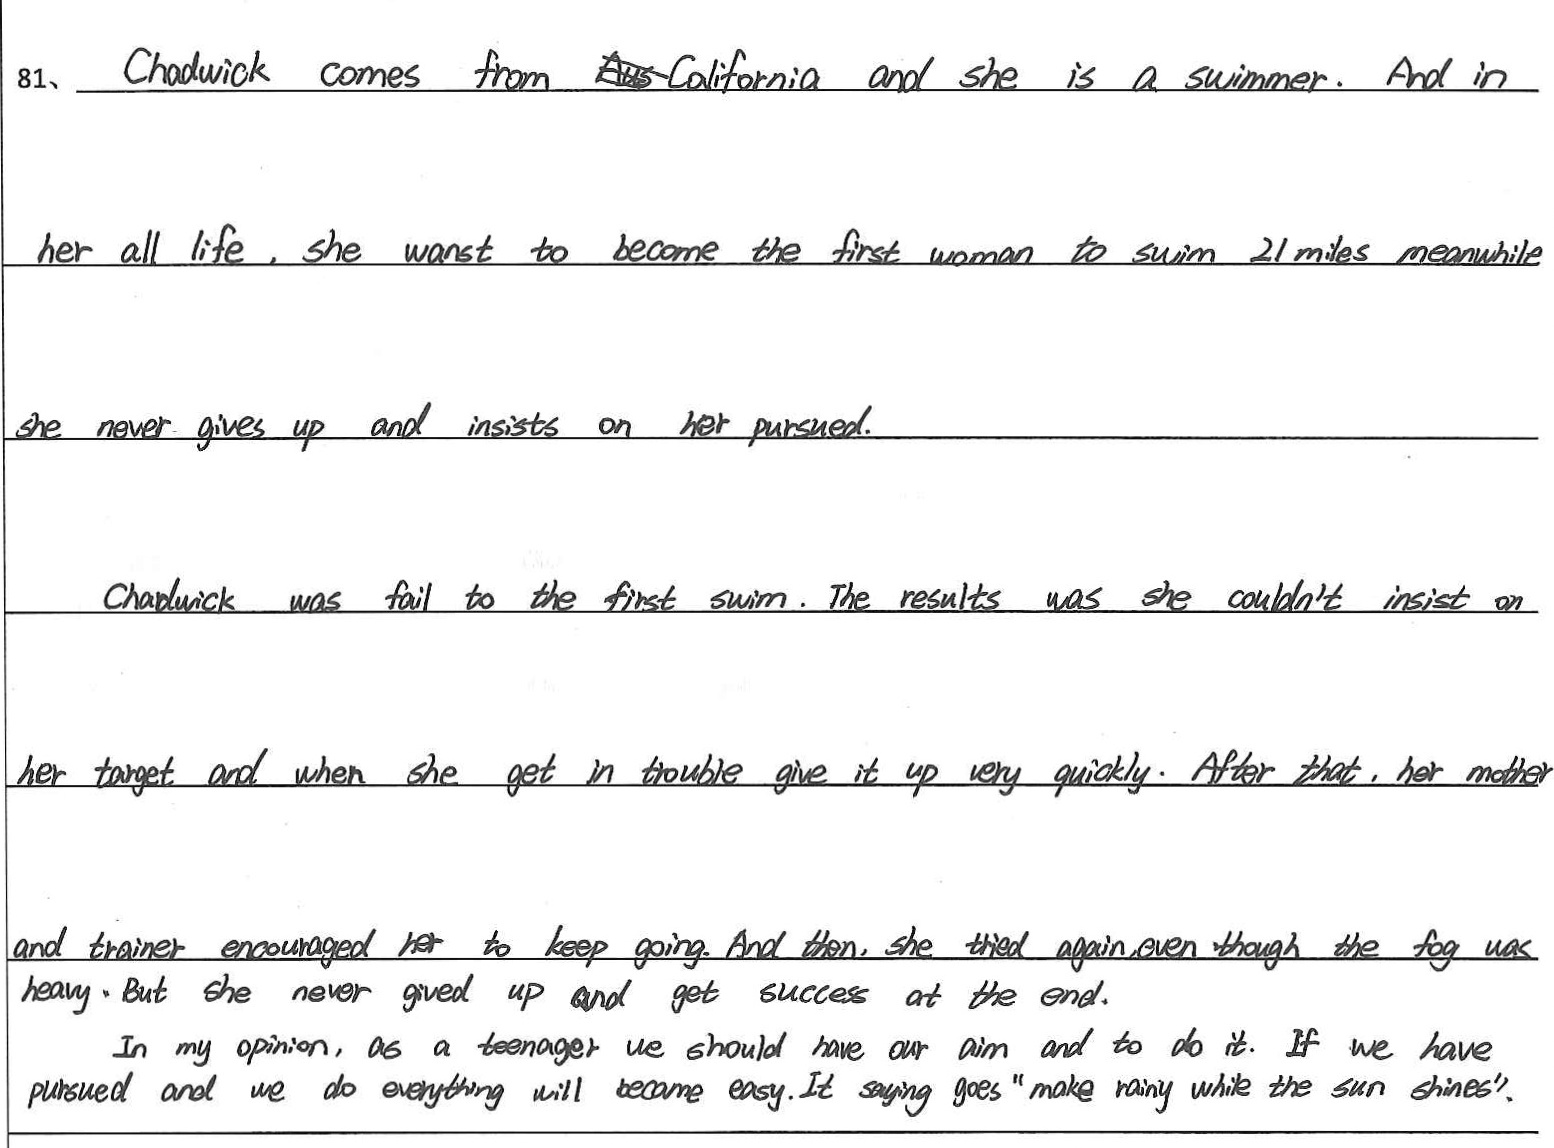 81、 Chadwick comes from Aus California and she is a swimmer. And in
her all life, she wanst to become the first woman to swim 21 miles meanwhile
she never gives up and insists on her pursued.
Chadwick was fail to the first swim. The results was she couldn't insist on
her target and when she get in trouble give it up very quickly. After that, her mother
and trainer encouraged her to keep going. And then, she tried again, even though the fog was
heavy. But she never gived up and get success at the end.
In my opinion, as a teenager we should have our aim and to do it. If we have
pursued and we do everything will become easy. It saying goes "make rainy while the sun shines".